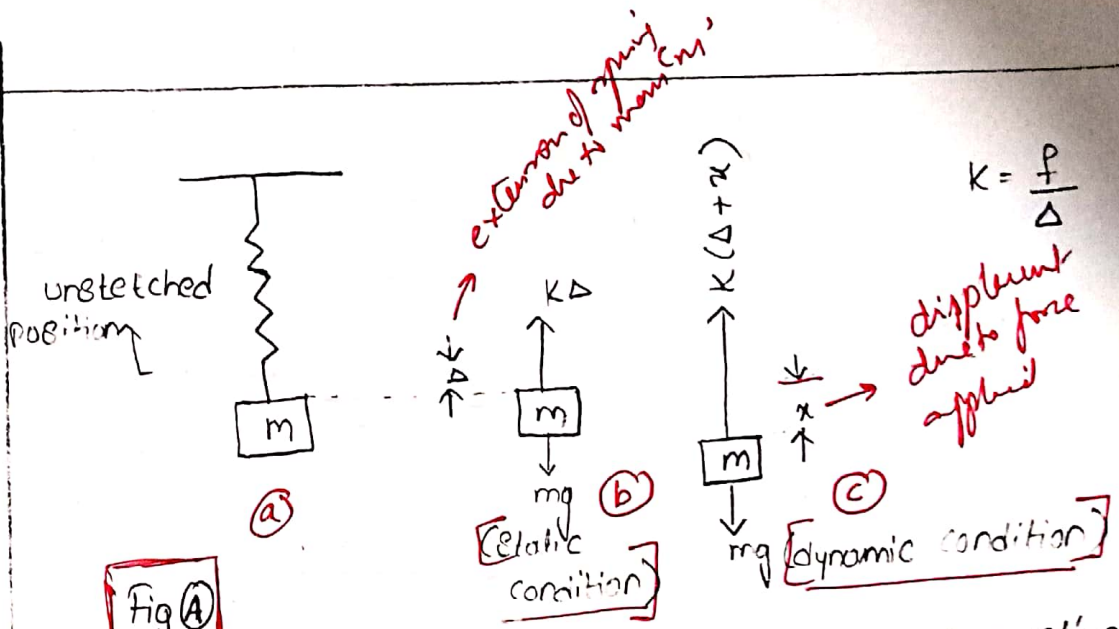 extension of spring
due to mass 'm'
K = f
Δ
unstetched
position
KΔ
K(Δ+x)
Δ
x
displument
due to force
applied
m
m
m
mg
mg
a
b
c
[(Static
condition)]
[dynamic condition)]
Fig A